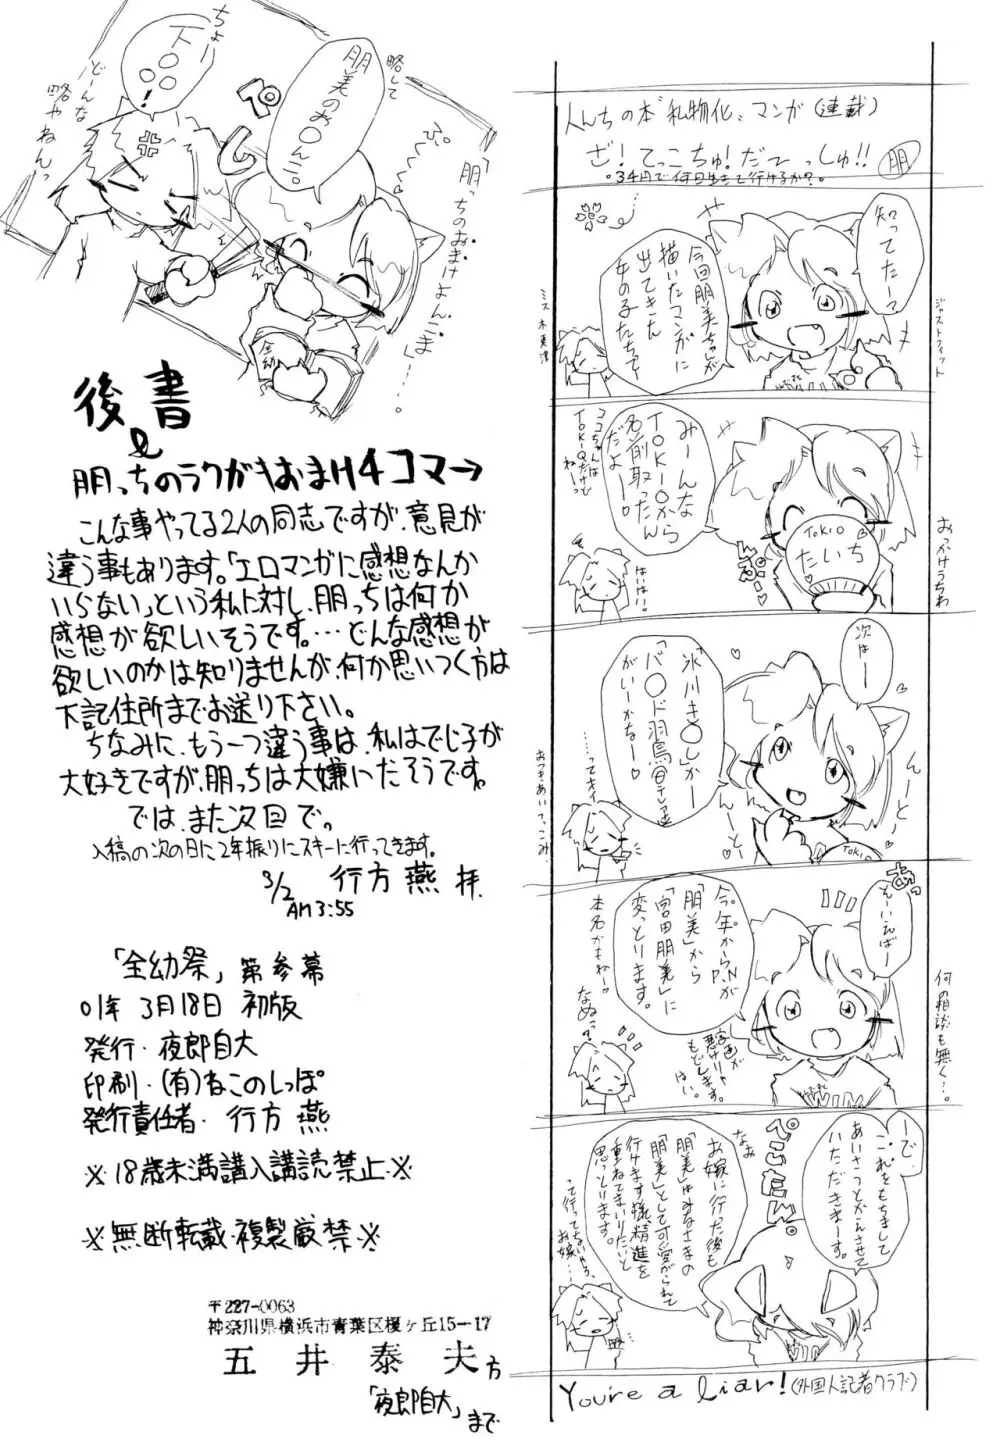 後書
&
朋っちのラクガキおまけ4コマ→
こんな事やってる2人の同志ですが、意見が
違う事もあります。「エロマンガに感想なんか
いらない」という私に対し、朋っちは何か
感想が欲しいそうです。…どんな感想が
欲しいのかは知りませんが、何か思いつく方は
下記住所までお送り下さい。
ちなみに、もう一つ違う事は、私はでじ子が
大好きですが、朋っちは大嫌いだそうです。
では、また次回で。
入稿の次の日に2年振りにスキーに行ってきます。
3/2 行方 燕 拝.
AM3:55
「全幼祭」第参幕
01年 3月18日 初版
発行・夜郎自大
印刷・(有)ねこのしっぽ
発行責任者・行方 燕
※18歳未満購入講読禁止※
※無断転載・複製厳禁※
〒227-0063
神奈川県横浜市青葉区榎ヶ丘15-17
五井 泰夫 方
「夜郎自大」まで
人んちの本"私物化〟マンガ(連載)
ざ!てっこちゅ!だてっしゅ!! 朋
。34円で何日生きて行けるか?。
知ってたー?
今回朋美ちゃんが
描いたマンガに
出てきた
女の子たちって
ジャストフィット
みーんな
TOKIOから
名前取ったん
だよー。
はいはい。
TOKIO
たいち
おっかけうちわ
次はー
「氷川き○し」か
「バ○ド羽鳥@テレ透」
がいーかなー♡
んーとんーと
TOKIO
おつきあいてっこみ
あっ
そーいえばー
今年からP.Nが
「朋美」から
「宮田朋美」に
変っとります。
本名かもねー♡
なぬっ?
何の相談も無く…。
ーでー
これをもちまして
あいさつとかえさせて
いただきまーす。
ぺこたん。
なお
お嫁に行った後も
「朋美」はみなさまの
「朋美」として可愛がられて
行けます様、精進を
重ねてまいりたいと
思っとります。
って行ってないやろ、お嫁…
You're a liar!(外国人記者クラブ)